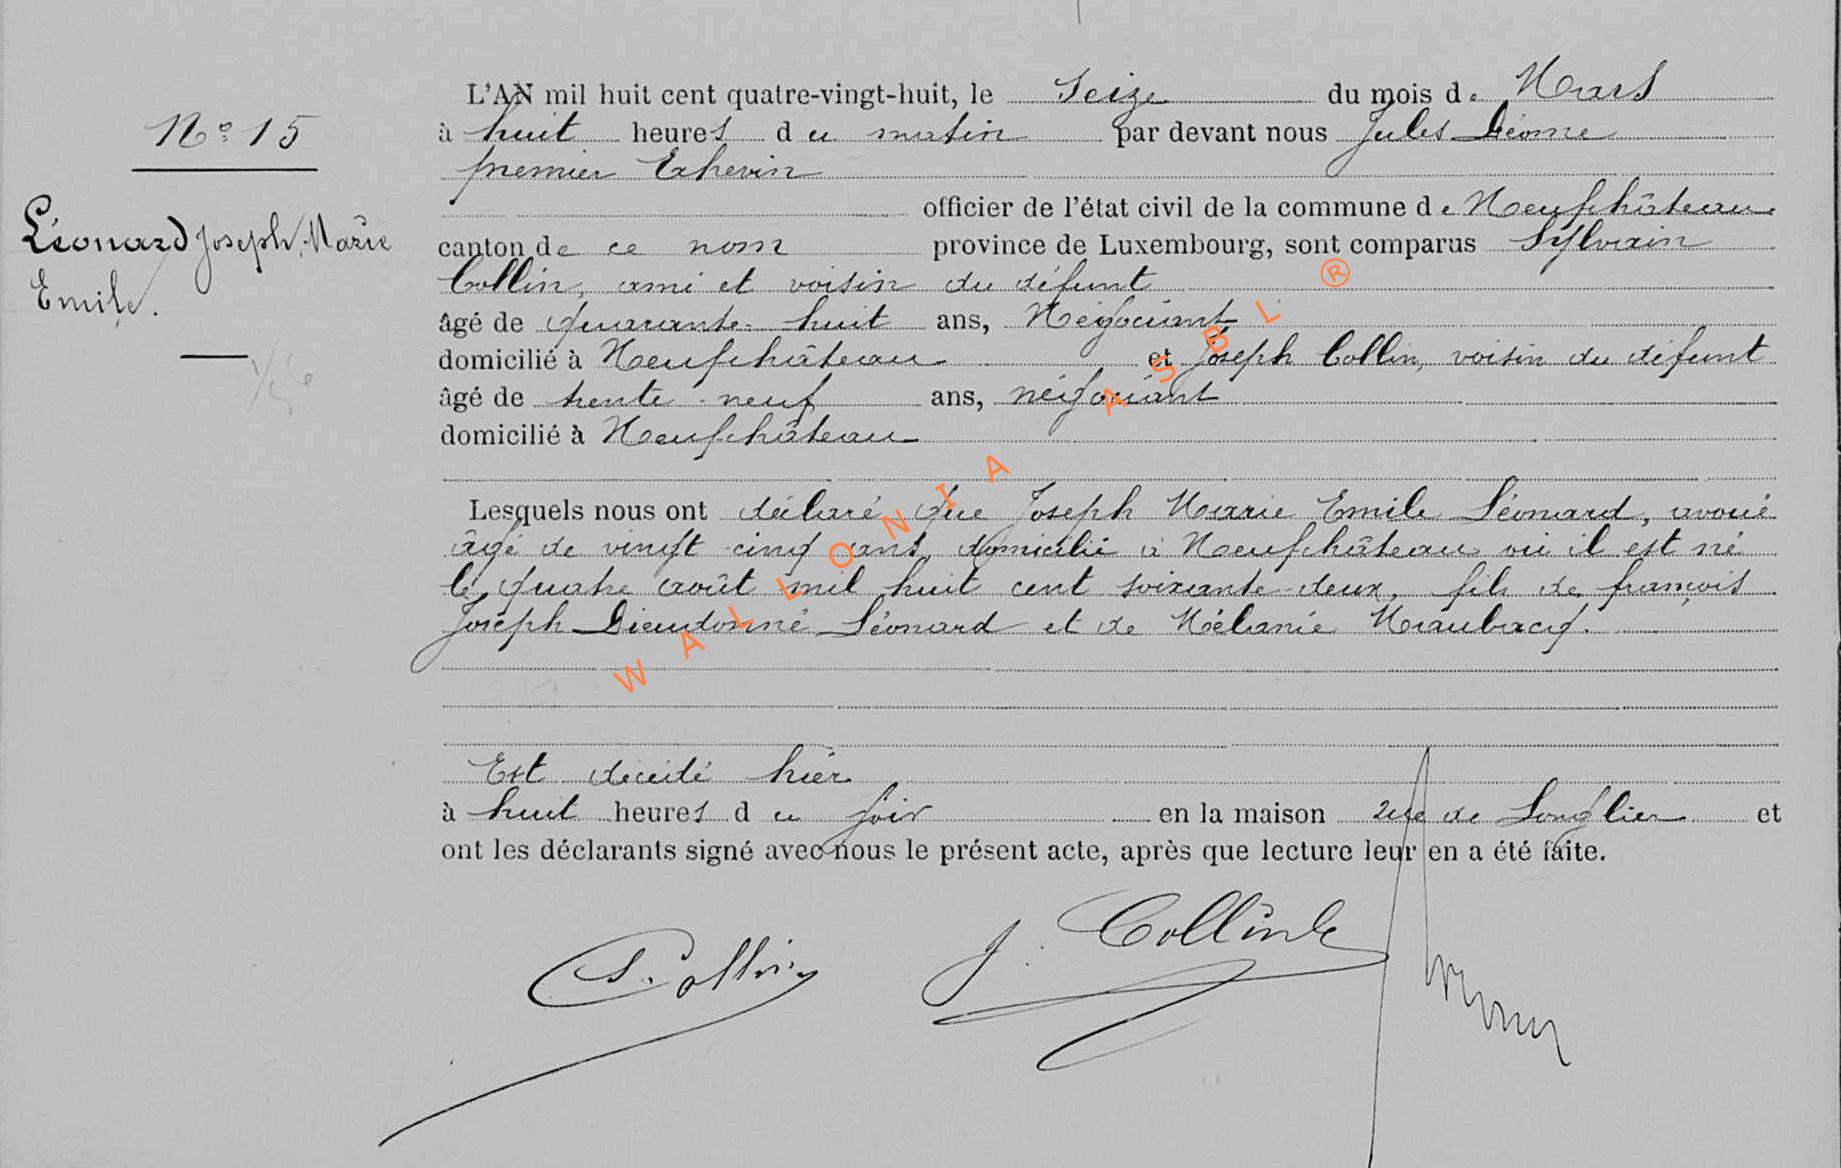 L'AN mil huit cent quatre-vingt-huit, le Seize du mois de Mars
N° 15
à huit heures du matin par devant nous Jules Léonne
premier Echevin
officier de l'état civil de la commune de Neufchâteau
Léonard Joseph, Marie
canton de ce nom province de Luxembourg, sont comparus Sylvain
Emile.
Collin, ami et voisin du défunt
âgé de quarante-huit ans, Négociant
domicilié à Neufchâteau et Joseph Collin, voisin du défunt
âgé de trente-neuf ans, négociant
domicilié à Neufchâteau
Lesquels nous ont déclaré que Joseph Marie Emile Léonard, avoué
âgé de vingt-cinq ans, domicilié à Neufchâteau où il est né
le quatre août mil huit cent soixante-deux, fils de françois
Joseph Dieudonné Léonard et de Mélanie Maubacq.
Est décédé hier
à huit heures du soir en la maison rue de Longlier et
ont les déclarants signé avec nous le présent acte, après que lecture leur en a été faite.
S. Collin
J. Collin
WALLONIA ASBL ®